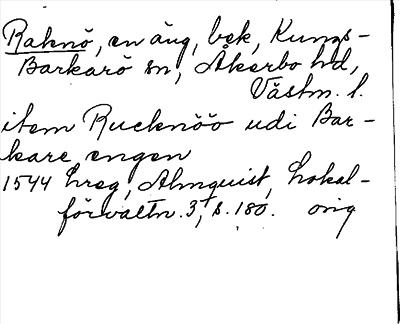 Raknö, en äng, bek, Kungs-
Barkarö sn, Åkerbo hd,
Västm. l.
item Rucknöö udi Bar-
kare engen
1544 hreg, Almquist, Lokal-
förvaltn. 3, s. 180. orig